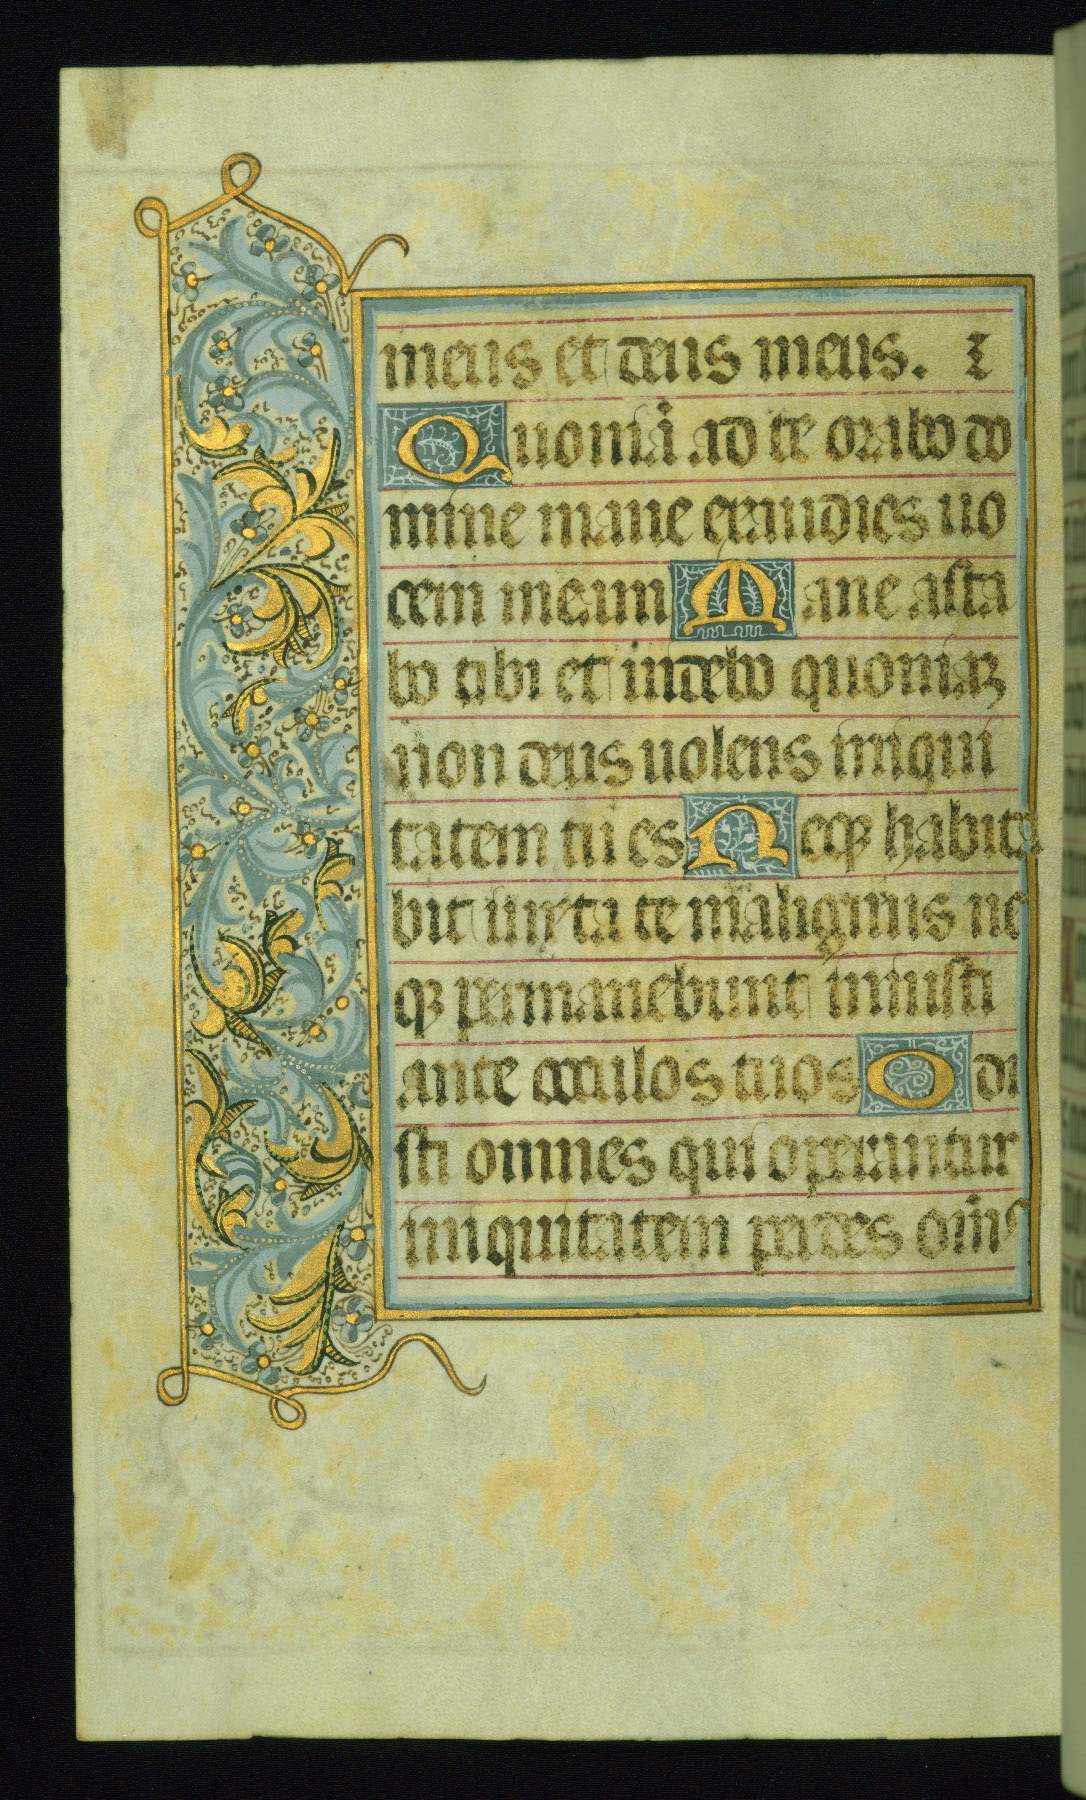 meus et deus meus.
Quoniā ad te orabo do
mine mane exaudies uo
cem meam Mane asta
bo tibi et uidebo quoniaꝫ
non deus uolens iniqui
tatem tu es Neqꝫ habita
bit iuxta te malignus ne
qꝫ permanebunt iniusti
ante occulos tuos Odi
sti omnes qui operantur
iniquitatem perdes om̄s